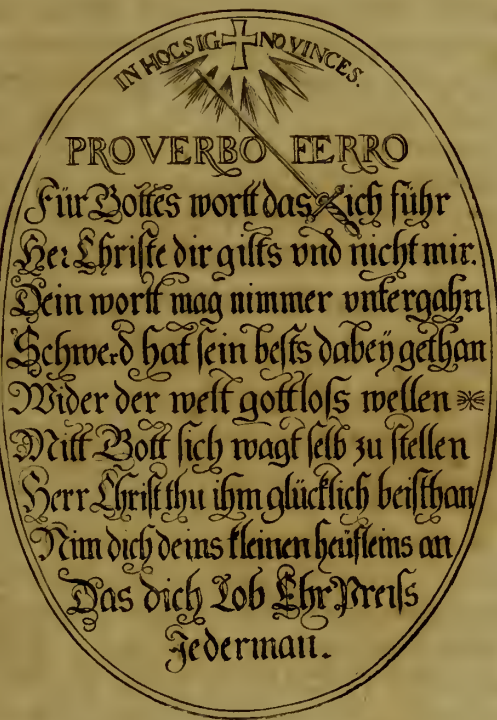 IN HOC SIG NO VINCES.
PRO VERBO FERRO
Für Gottes wortt das ich führ
Her Christe dir gilts vnd nicht mir.
Dein wortt mag nimmer vntergahn
Schwerd hat sein bests dabeÿ gethan
Wider der welt gottloſs wellen
Mitt Gott ſich wagt ſelb zu ſtellen
Herr Chriſt thu ihm glücklich beiſthan
Nim dich deins kleinen heüfleins an
Das dich Lob Ehr Preiſs
Jederman.